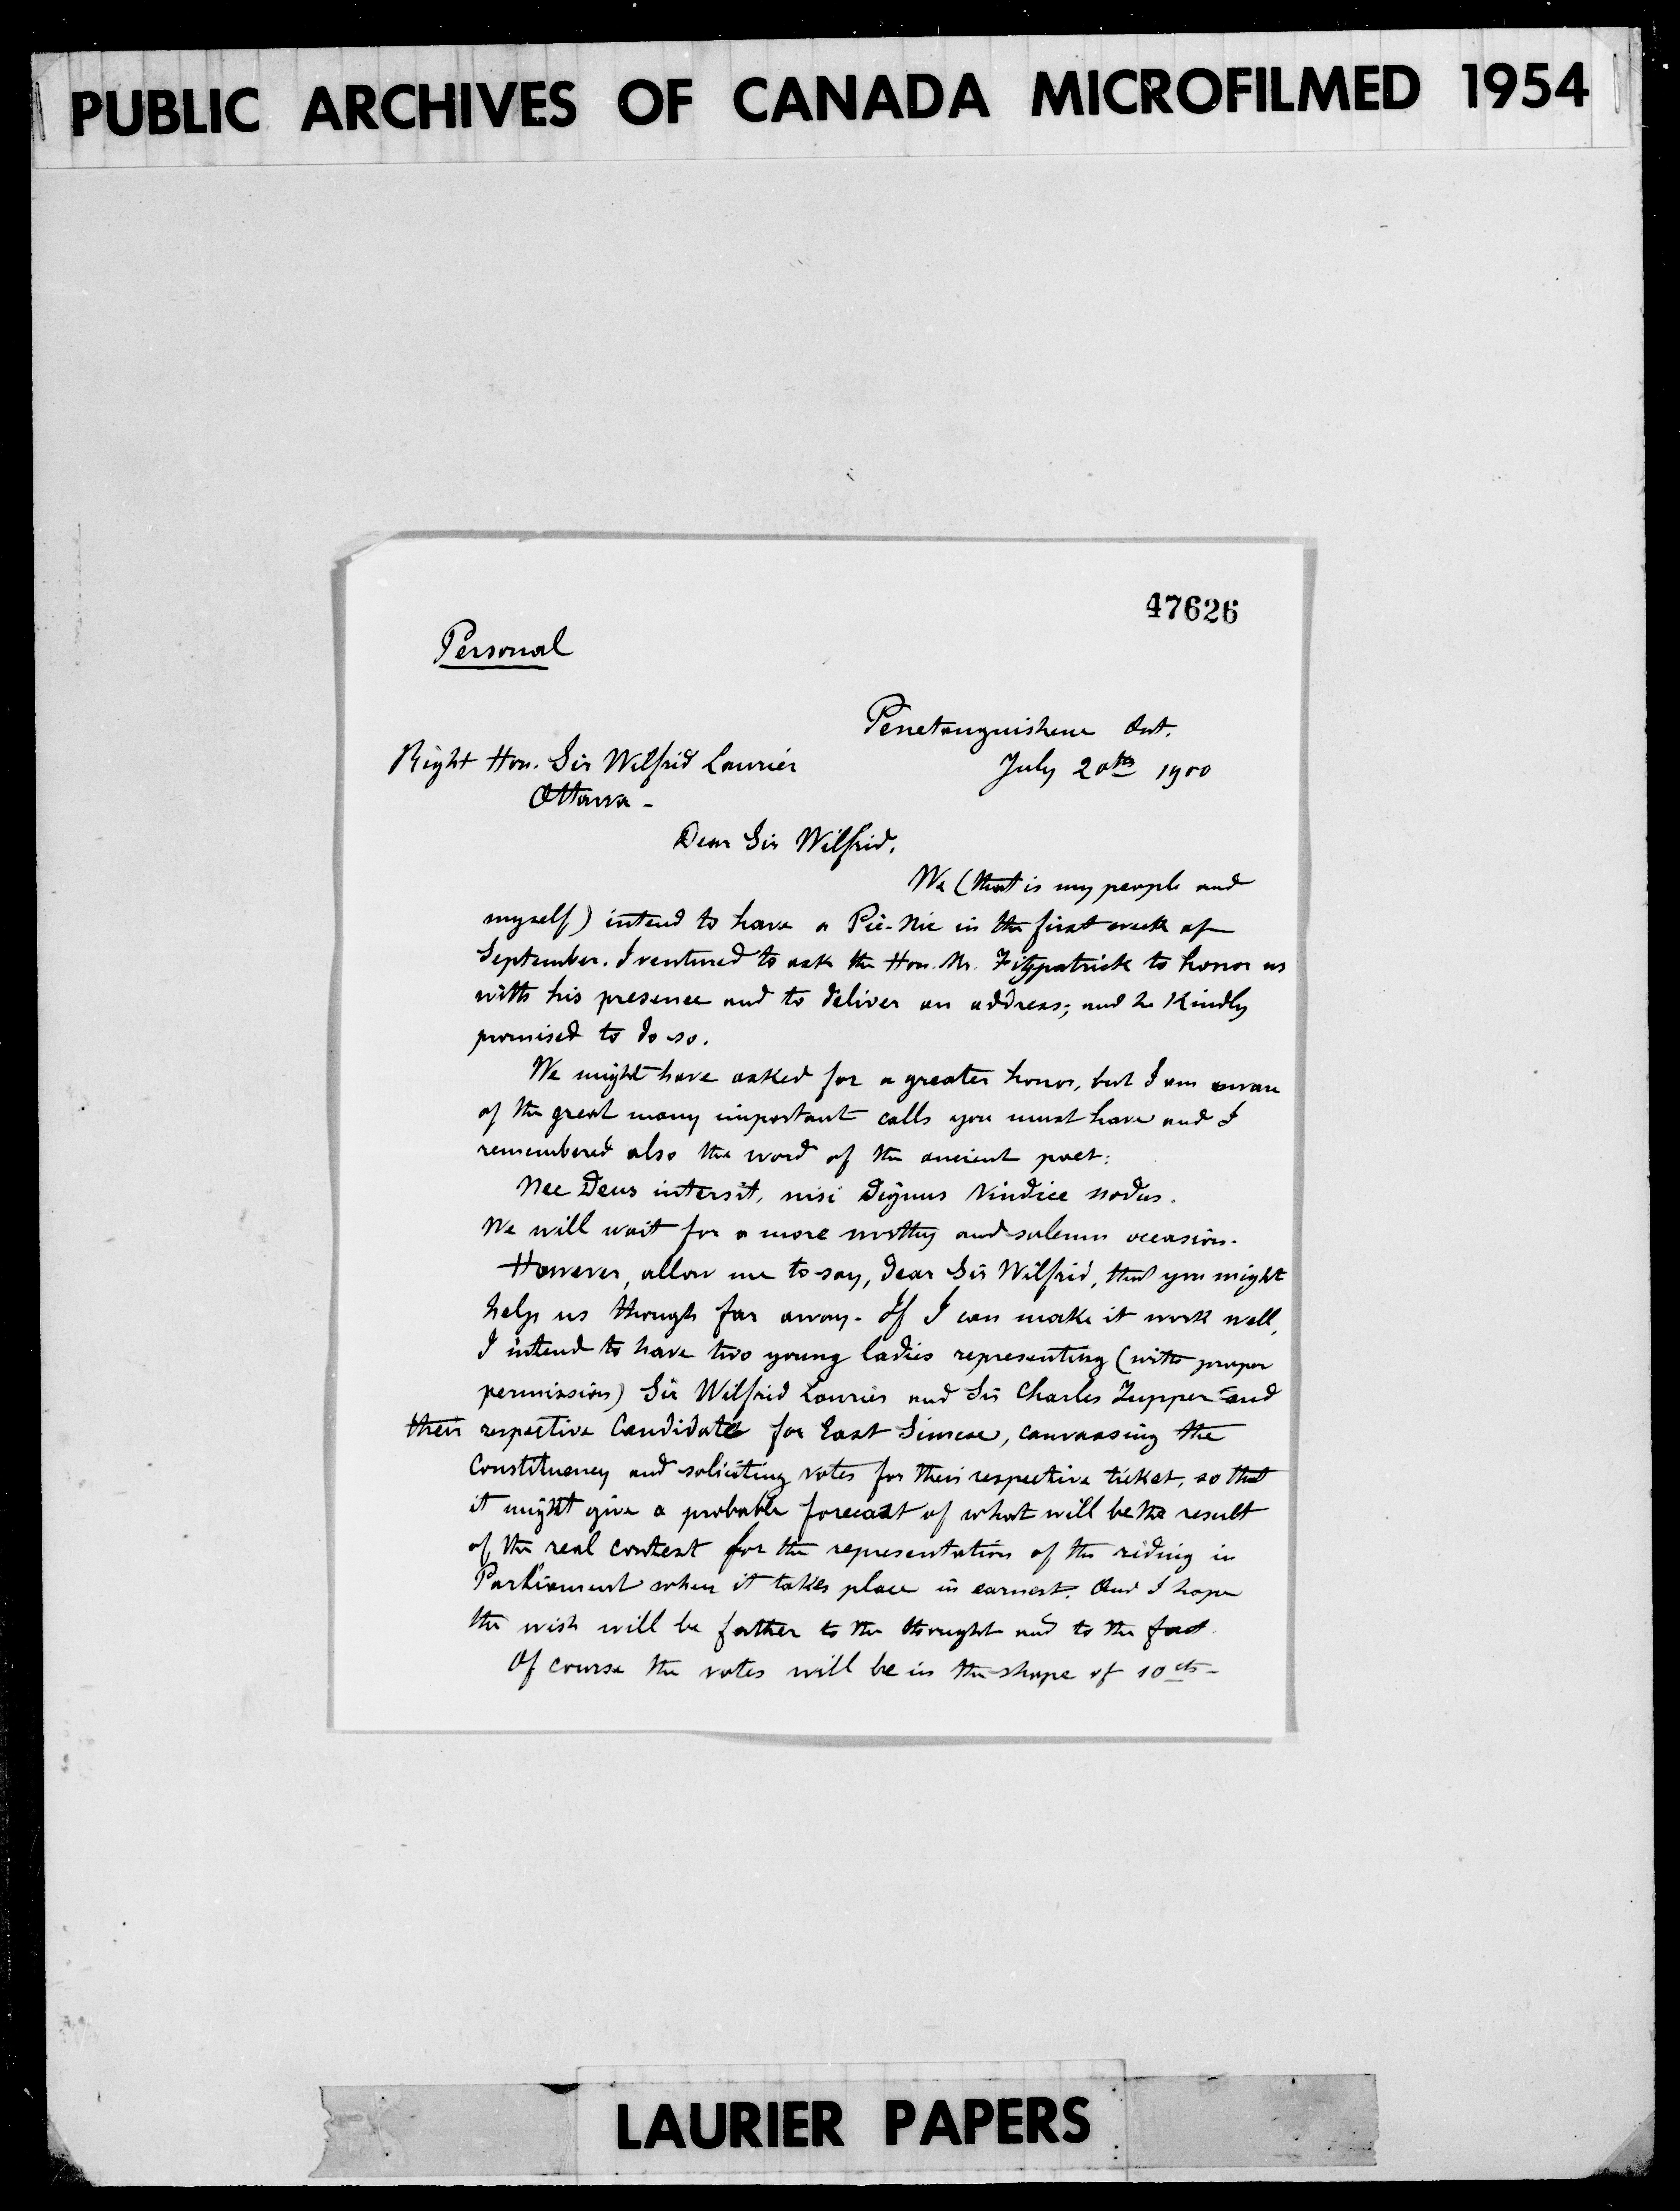 PUBLIC ARCHIVES OF CANADA MICROFILMED 1954
47626
Personal
Penetanguishene Ont.
Right Hon. Sir Wilfrid Laurier
July 20th 1900
Ottawa -
Dear Sir Wilfrid,
We (that is my people and
myself) intend to have a Pic-Nic in the first week of
September. I ventured to ask the Hon. Mr. Fitzpatrick to honor us
with his presence and to deliver an address; and he kindly
promised to do so.
We might have asked for a greater honor, but I am aware
of the great many important calls you must have and I
remembered also the word of the ancient poet:
Nec Deus intersit, nisi dignus vindice nodus.
We will wait for a more worthy and solemn occasion.
However, allow me to say, dear Sir Wilfrid, that you might
help us though far away. If I can make it work well,
I intend to have two young ladies representing (with proper
permission) Sir Wilfrid Laurier and Sir Charles Tupper and
their respective Candidate for East Simcoe, canvassing the
Constituency and soliciting votes for their respective ticket, so that
it might give a probable forecast of what will be the result
of the real contest for the representation of the riding in
Parliament when it takes place in earnest. And I hope
the wish will be father to the thought and to the fact.
Of course the votes will be in the shape of 10 cts-
LAURIER PAPERS